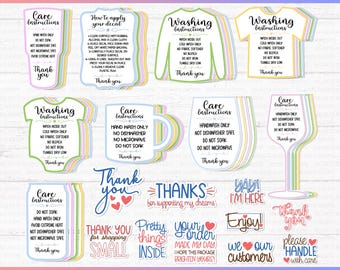 Care
Instructions
HAND WASH ONLY
NOT DISHWASHER SAFE
AVOID EXTREME HEAT
DO NOT MICROWAVE
DO NOT SOAK
Thank
you
How to apply
your decal
Thank you
Washing
Instructions
WASH INSIDE OUT
COLD WASH ONLY
NO FABRIC SOFTENER
NO BLEACH
DO NOT IRON
TUMBLE DRY LOW
Thank you
Washing
Instructions
WASH INSIDE OUT
COLD WASH ONLY
NO FABRIC SOFTENER
NO BLEACH
DO NOT IRON
TUMBLE DRY LOW
Thank you
Washing
Instructions
WASH INSIDE OUT
COLD WASH ONLY
NO FABRIC SOFTENER
NO BLEACH
DO NOT IRON
TUMBLE DRY LOW
Thank you
Care
Instructions
HAND WASH ONLY
NOT DISHWASHER SAFE
NO MICROWAVE
DO NOT SOAK
Thank you
Care
Instructions
HAND WASH ONLY
DO NOT SOAK
NOT DISHWASHER SAFE
DO NOT MICROWAVE
Thank you
Care
Instructions
DO NOT SOAK
HAND WASH ONLY
NOT DISHWASHER SAFE
DO NOT MICROWAVE
Thank you
Care
Instructions
DO NOT SOAK
HAND WASH ONLY
AVOID EXTREME HEAT
DO NOT MICROWAVE
NOT DISHWASHER SAFE
Thank you
Thank
you
THANKS
for supporting my dreams
BABY!
I'M HERE
THANK YOU
for shopping
SMALL
Pretty
things
INSIDE
Your
order
MADE MY DAY
HOPE THIS PACKAGE
BRIGHTENS YOURS!
Enjoy!
Thank
you
we
our
customers
please
HANDLE
with care